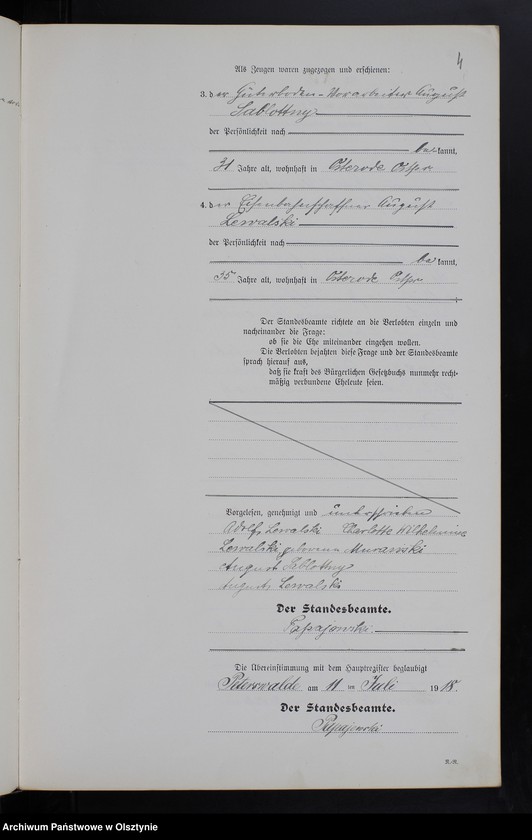 4
Als Zeugen waren zugezogen und erschienen:
3. der Güterboden-Vorarbeiter August
Sablottny
der Persönlichkeit nach
bekannt,
31 Jahre alt, wohnhaft in Osterode Ostpr
4. der Eisenbahnschaffner August
Lewalski
der Persönlichkeit nach
bekannt,
35 Jahre alt, wohnhaft in Osterode Ostpr
Der Standesbeamte richtete an die Verlobten einzeln und
nacheinander die Frage:
ob sie die Ehe miteinander eingehen wollen.
Die Verlobten bejahten diese Frage und der Standesbeamte
sprach hierauf aus,
daß sie kraft des Bürgerlichen Gesetzbuchs nunmehr recht-
mäßig verbundene Eheleute seien.
Vorgelesen, genehmigt und unterschrieben
Adolf Lewalski Charlotte Wilhelmine
Lewalski geborene Murawski
August Sablottny
August Lewalski
Der Standesbeamte.
Papajewski.
Die Übereinstimmung mit dem Hauptregister beglaubigt
Peterswalde am 11 ten Juli 1918.
Der Standesbeamte.
Papajewski
Archiwum Państwowe w Olsztynie